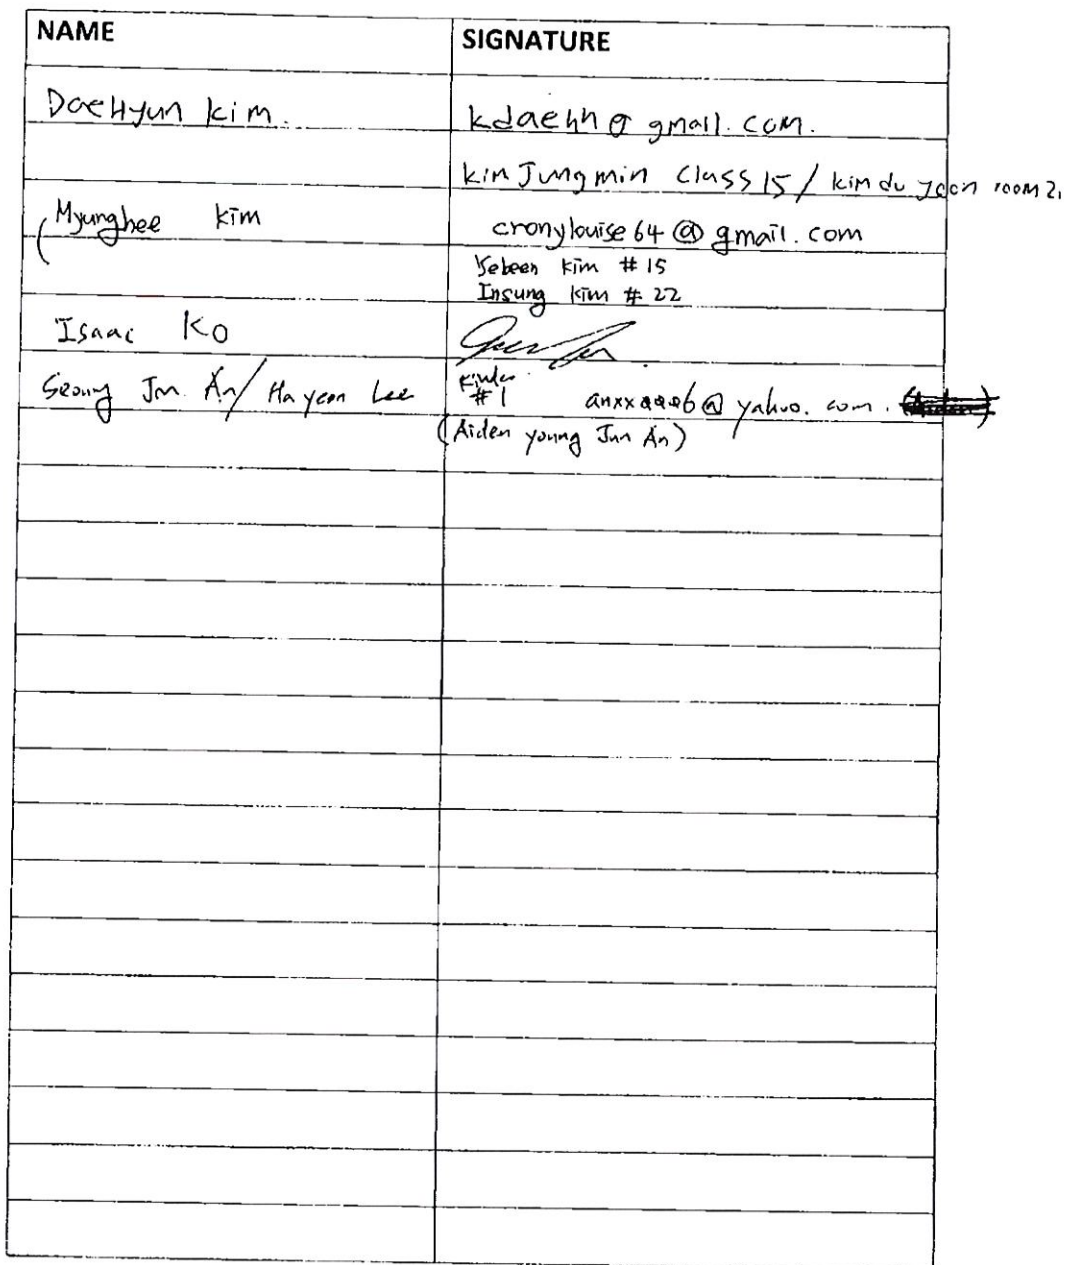 NAME SIGNATURE
DaeHyun kim. kdaehh@gmail.com.
kim Jungmin class 15 / kim du yoon room 2,
Myunghee Kim cronylouise64@gmail.com
Sebeen Kim #15
Insung Kim #22
Isaac Ko
Seoung Jun An / Hayeon Lee Kinder #1 @yahoo.com.
(Aiden young Jun An)